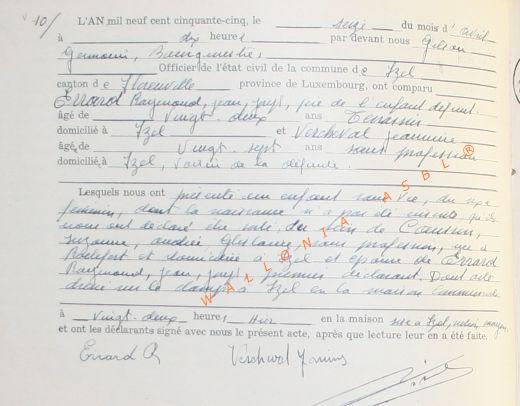 10/ L'AN mil neuf cent cinquante-cinq, le seize du mois d'avril
à dix heures par devant nous Gilson
Germain, Bourgmestre,
Officier de l'état civil de la commune de Izel
canton de Florenville province de Luxembourg, ont comparu
Errard Raymond, Jean, père de l'enfant défunt.
âgé de vingt-deux ans Terrassier
domicilié à Izel et Verchval Jeannine
âgé de vingt-sept ans sans profession
domicilié à Izel, voisine de la défunte.
Lesquels nous ont présenté un enfant sans vie, du sexe
féminin, dont la naissance n'a pas été
nous ont déclaré être de
Suzanne, Andrée Ghislaine, sans profession, née à
Rochefort et domiciliée à Izel et épouse de Errard
Raymond, Jean, premier déclarant. Dont acte
dressé sur le champ à Izel en la maison communale
à vingt-deux heures Hier en la maison sise à Izel,
et ont les déclarants signé avec nous le présent acte, après que lecture leur en a été faite.
Errard R Verchval
WALLONIA ASBL ®